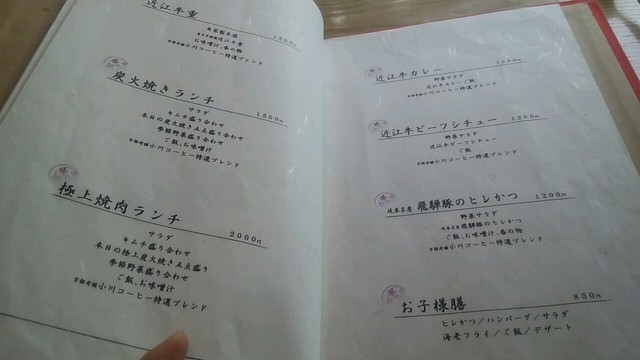 近江牛重
お味噌汁、香の物
京都老舗小川コーヒー特選ブレンド
炭火焼きランチ
1300円
サラダ
キムチ盛り合わせ
本日の炭火焼き五点盛り
季節野菜盛り合わせ
ご飯、お味噌汁
京都老舗小川コーヒー特選ブレンド
極上焼肉ランチ
2000円
サラダ
キムチ盛り合わせ
本日の極上炭火焼き五点盛り
季節野菜盛り合わせ
ご飯、お味噌汁
京都老舗小川コーヒー特選ブレンド
近江牛カレー
野菜サラダ
京都老舗小川コーヒー特選ブレンド
近江牛ビーフシチュー
1200円
野菜サラダ
近江牛ビーフシチュー
ご飯
京都老舗小川コーヒー特選ブレンド
岐阜名産 飛騨豚のヒレかつ 1200円
野菜サラダ
岐阜名産飛騨豚のヒレかつ
ご飯、お味噌汁、香の物
京都老舗小川コーヒー特選ブレンド
お子様膳 850円
ヒレかつ/ハンバーグ/サラダ
海老フライ/ご飯/デザート